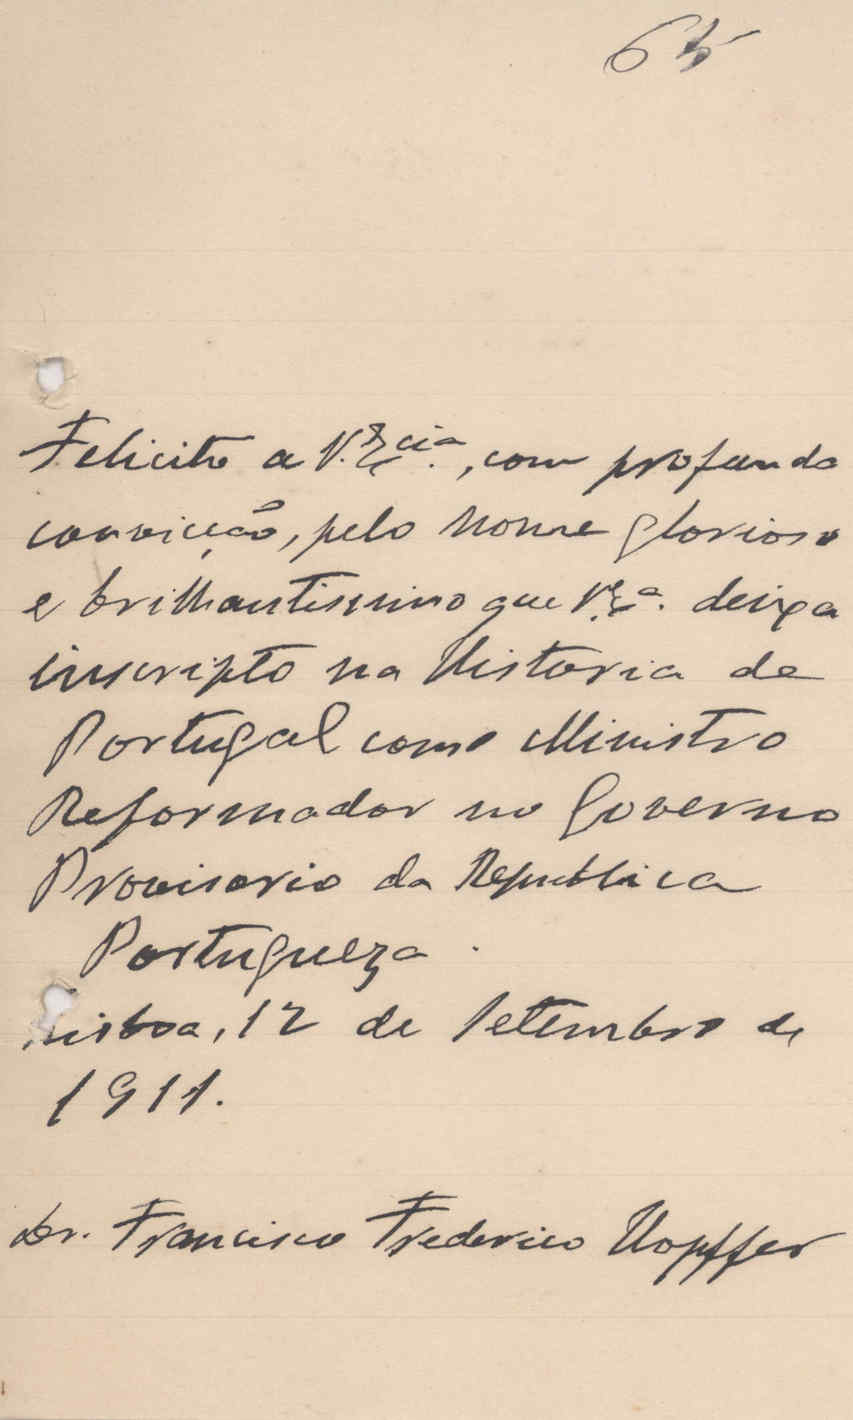 65
Felicito a V. Excia., com profunda
convicção, pelo nome glorioso
e brilhantissimo que V. Exa. deixa
inscripto na Historia de
Portugal como Ministro
Reformador no Governo
Provisorio da Republica
Portugueza.
Lisboa, 12 de Setembro de
1911.
Dr. Francisco Frederico Hopffer